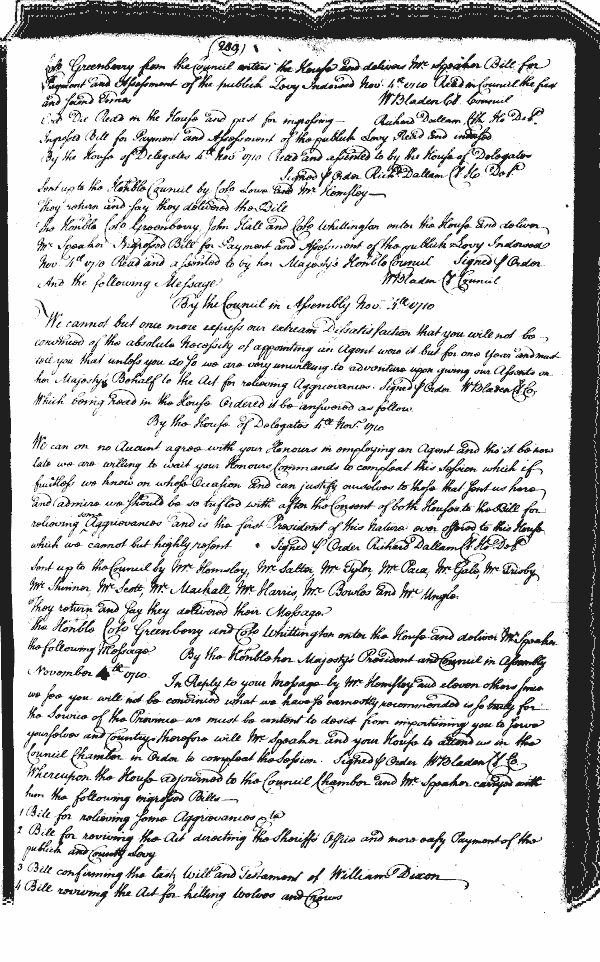 (289)
Colo Greenberry from the Council enters the House and delivers Mr Speaker Bill for
Payment and Assessment of the publick Levy Indorsed Novr 4th 1710 Read in Council the first
and second times
W Bladen Cl. Council
Read in the House and past for ingrossing — Richard Dallam Clk Ho Delts
Ingrossed Bill for Payment and Assessment of the publick Levy Read and indorsed
By the House of Delegates 4th Novr 1710 Read and assented to by the House of Delegates
Signed p Order Richd Dallam Cl Ho Delts
Sent up to the Honble Council by Colo Lowe and Mr Hemsley —
They return and say they delivered the Bill
the Honble Colo Greenberry, John Hall and Colo Whittington enter the House and deliver
Mr Speaker Ingrossed Bill for Payment and Assessment of the publick Levy Indorsed
Novr 4th 1710 Read and assented to by her Majestys Honble Council Signed p Order
And the following Message W Bladen Cl Council
By the Council in Assembly Novr 4th 1710
We cannot but once more express our extream Dissatisfaction that you will not be
convinced of the absolute Necessity of appointing an Agent were it but for one Year and must
tell you that unless you do so we are very unwilling to adventure upon giving our Assents on
her Majestys Behalf to the Act for relieving Aggrievances. Signed p Order W Bladen Cl Co.
Which being read in the House Ordered it be answered as follow
By the House of Delegates 4th Novr 1710
We can on no Account agree with your Honours in employing an Agent and tho it be now
late we are willing to wait your Honours Commands to compleat this Session which if
fruitless we know on whose Occasion and can justify ourselves to those that sent us here
and admire we should be so trifled with after the Consent of both Houses to the Bill for
relieving some Aggrievances and is the first President of this Nature ever offered to this House
which we cannot but highly resent Signed p Order Richard Dallam Cl Ho Delts
Sent up to the Council by Mr Hemsley, Mr Salter, Mr Tyler, Mr Paca, Mr Gale, Mr Frisby
Mr Skinner, Mr Scott, Mr Mackall, Mr Harris, Mr Bowles and Mr Ungle
They return and say they delivered their Message
the Honble Colo Greenberry and Colo Whittington enter the House and deliver Mr Speaker
the following Message By the Honble her Majestys President and Council in Assembly
November 4th 1710. In Reply to your Message by Mr Hemsley and eleven others since
we see you will not be convinced what we have so earnestly recommended is so truly for
the Service of the Province we must be content to desist from importuning you to serve
yourselves and Country therefore will Mr Speaker and your House to attend us in the
Council Chamber in Order to compleat the Session. Signed p Order W Bladen Cl Co
Whereupon the House adjourned to the Council Chamber and Mr Speaker carryed with
him the following ingrossed Bills —
1 Bill for relieving some Aggrievances &ca
2 Bill for reviving the Act directing the Sheriffs Office and more easy Payment of the
publick and County Levy
3 Bill confirming the last Will and Testament of William Dixon
4 Bill reviving the Act for killing Wolves and Crows